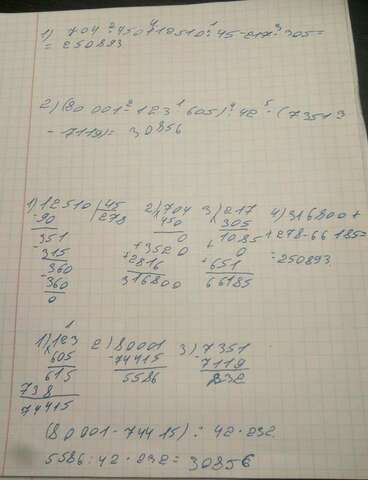 1) 704 · 450 + 12510 : 45 - 217 · 305 =
= 250893
2) (80 001 - 123 · 605) : 42 · (7351 -
- 7119) = 30856
1) 12510 | 45
- 90 | 278
351
- 315
360
- 360
0
2) 704
450
0
+ 3520
+ 2816
316800
3) 217
305
1085
+ 0
+ 651
66185
4) 316800 +
+ 278 - 66185 =
= 250893
1) 123
605
615
738
74415
2) 80001
- 74415
5586
3) 7351
- 7119
232
(80 001 - 74415) : 42 · 232
5586 : 42 · 232 = 30856